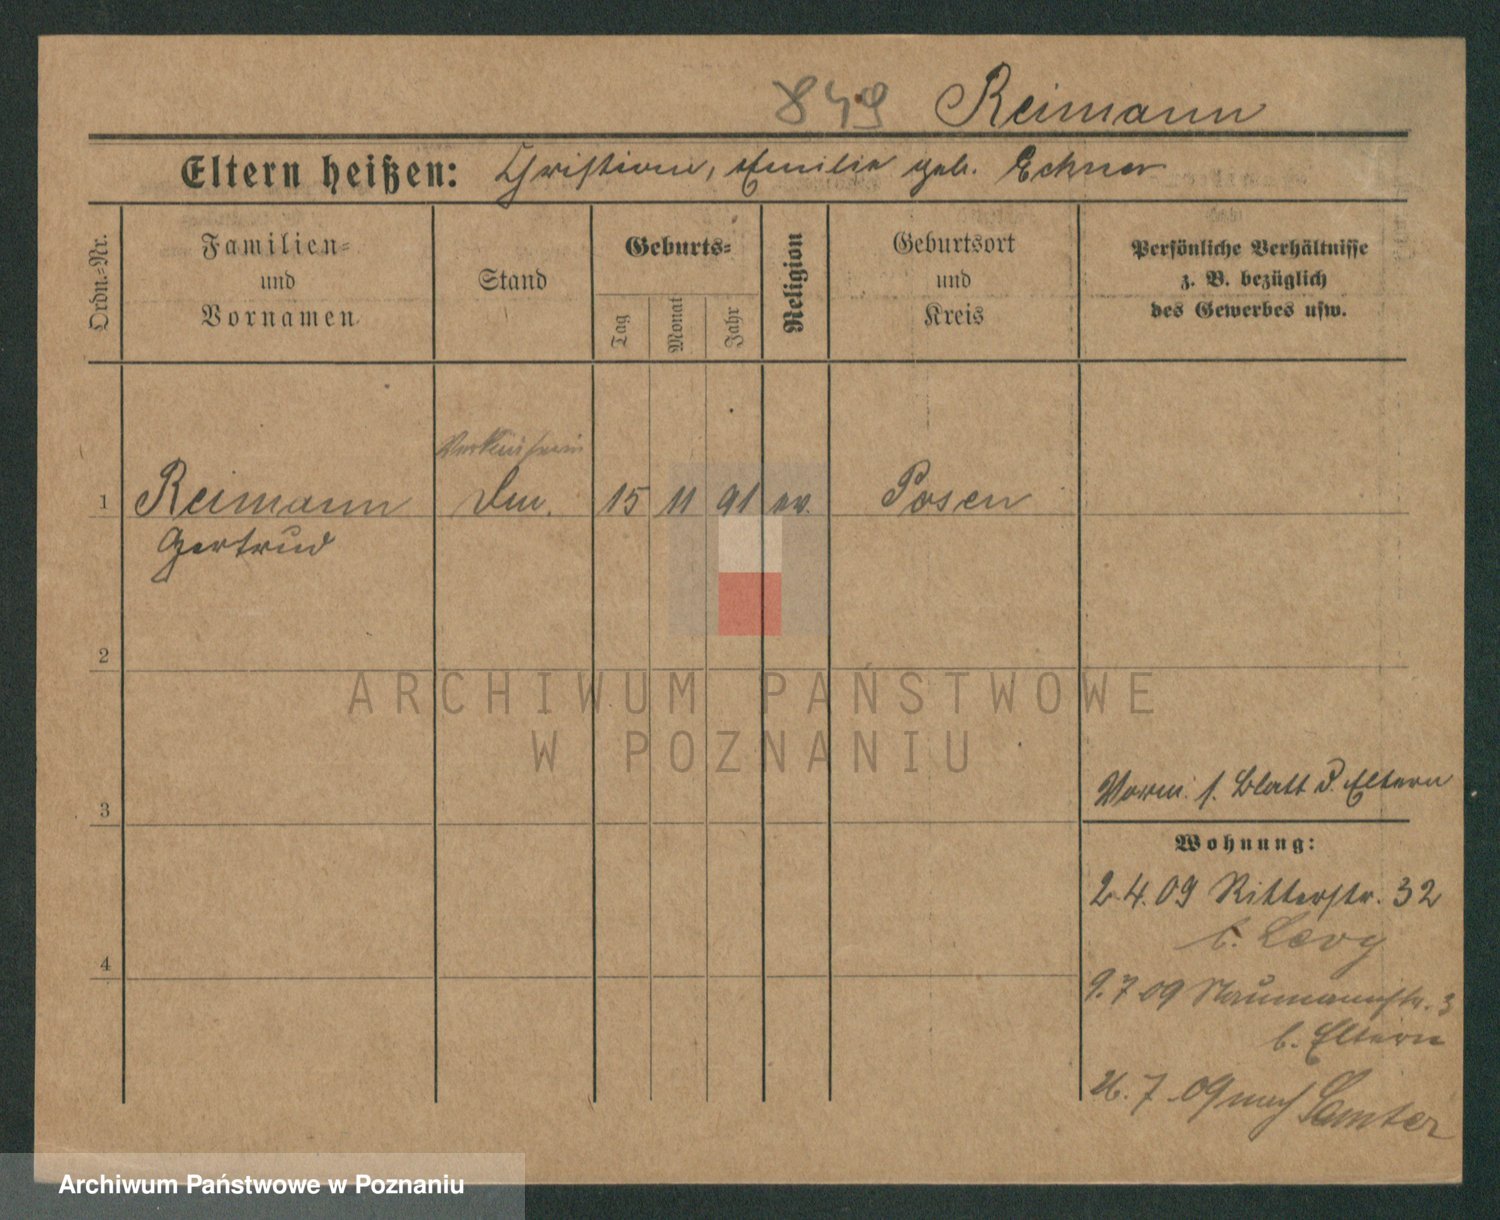 849 Reimann
Eltern heißen: Christian, Emilie geb. Eckner
Ordn.-Nr.
Familien-
und
Vornamen
Stand
Geburts-
Tag
Monat
Jahr
Religion
Geburtsort
und
Kreis
Persönliche Verhältnisse
z. B. bezüglich
des Gewerbes usw.
Verkäuferin
1 Reimann 15 11 91 ev. Posen
Gertrud
2
ARCHIWUM PAŃSTWOWE
W POZNANIU
Vorm. s. Blatt d. Eltern
3
Wohnung:
2.4.09 Ritterstr. 32
b. Levy
4
9.7.09 Naumannstr. 3
b. Eltern
26.7.09 nach Samter
Archiwum Państwowe w Poznaniu